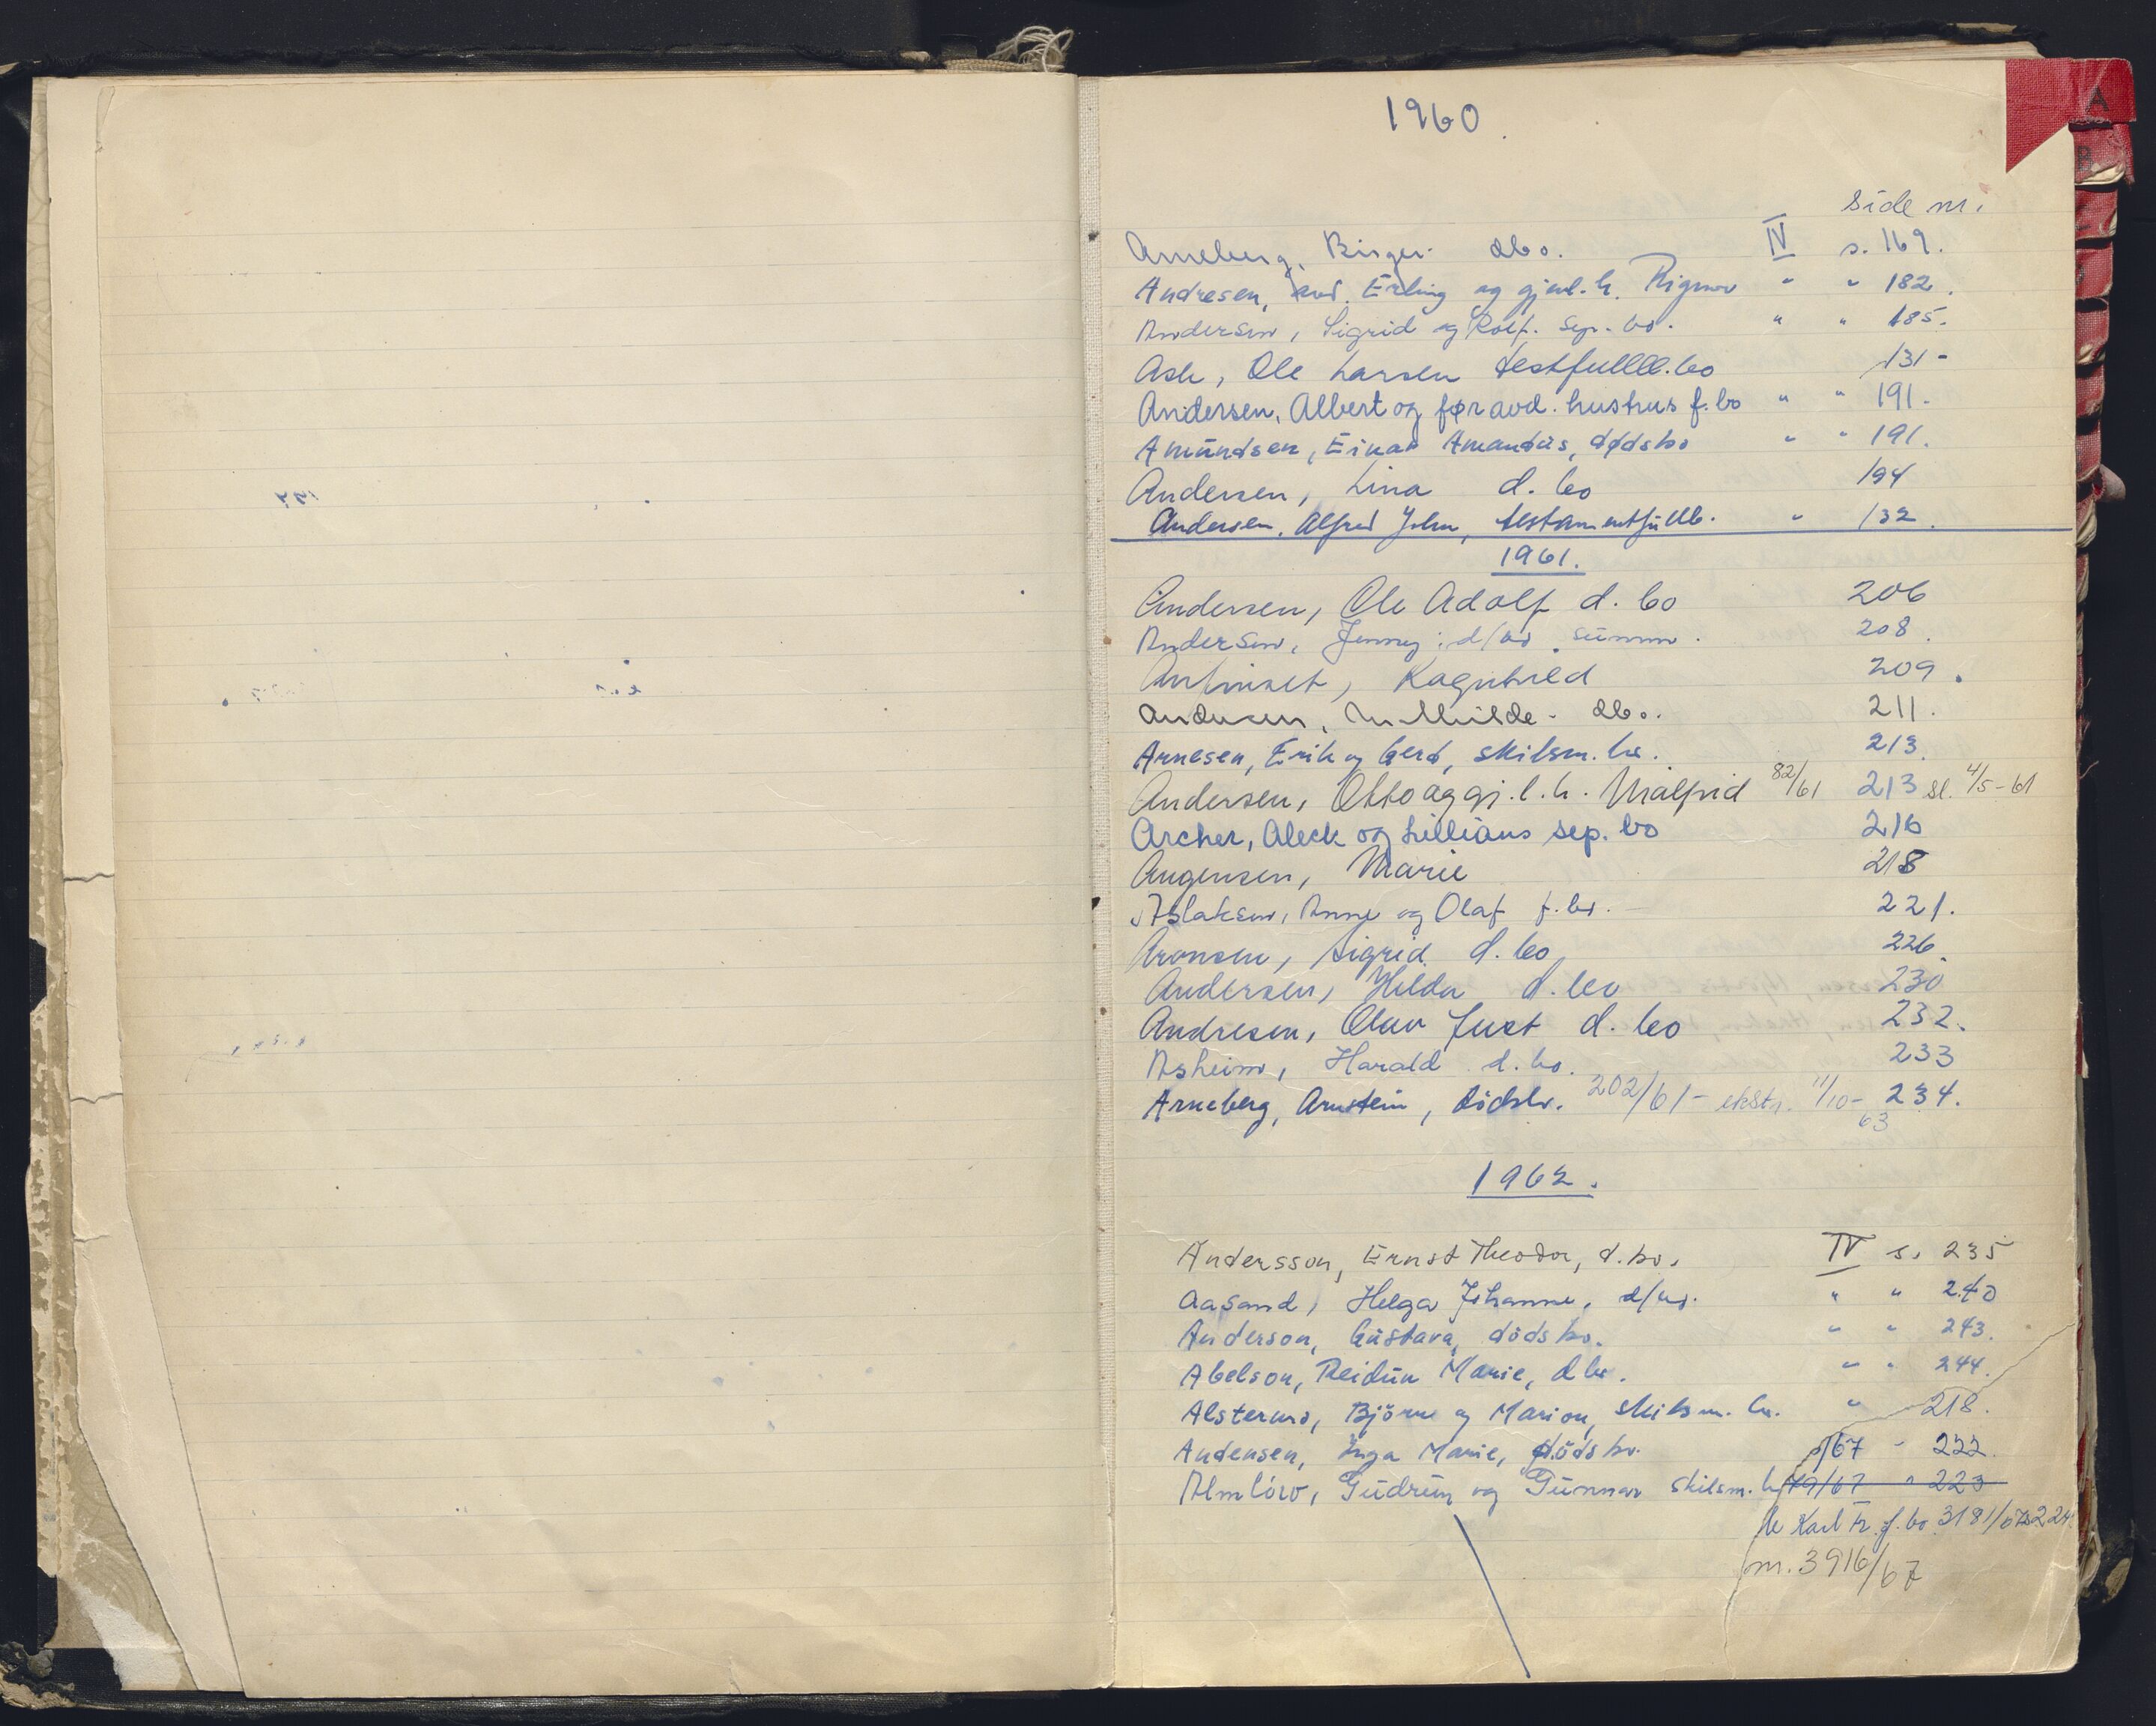 1960.
A
B
Side nr.
Arneberg, Birger dbo. IV s. 169.
Andresen, avd. Erling og gjenl. h. Rigmor " " 182.
Andersen, Sigrid og Rolf. sep. bo. " " 185.
Ask, Ole Larsen testfullb.bo 131-
Andersen, Albert og før avd. hustrus f. bo " " 191.
Amundsen, Einar Amandus, dødsbo " " 191.
Andersen, Lina d. bo 194
Andersen, Alfred John, testamentfullb. " 132.
1961.
Andersen, Ole Adolf d. bo 206
Andersen, Jenny : d/bo. summ. 208.
Ragnhild 209.
Andersen, Mathilde - dbo. 211.
Arnesen, Erik og Gerd, skilsm. bo. 213.
Andersen, Otto og gj. l. h. Målfrid 82/61 213 sl. 4/5-61
Archer, Aleck og Lillians sep. bo 216
Augensen, Marie 218
Aslaksen, Anne og Olaf f. bo. 221.
Aronsen, Sigrid d. bo 226.
Andersen, Hilda d. bo 230
Andresen, Olav Just d. bo 232.
Asheim, Harald d. bo. 233
Arneberg, Arnstein, dödsbo. 202/61 - ekstr. 11/10-63 234.
1962.
Andersson, Ernst Theodor, d. bo. IV s. 235
Aasand, Helga Johanne, d/bo. " " 240
Anderson, Gustava, dödsbo. " " 243.
Abelson, Reidun Marie, dbo. " " 244.
Björn og Marion, skilsm. bo. " 218.
Andersen, Inga Marie, dödsbo. /67 - 222.
Gudrun og Gunnar skilsm. b 79/67 " 223
Karl Fr. f. bo 3181/67 s 224
nr. 3916/67